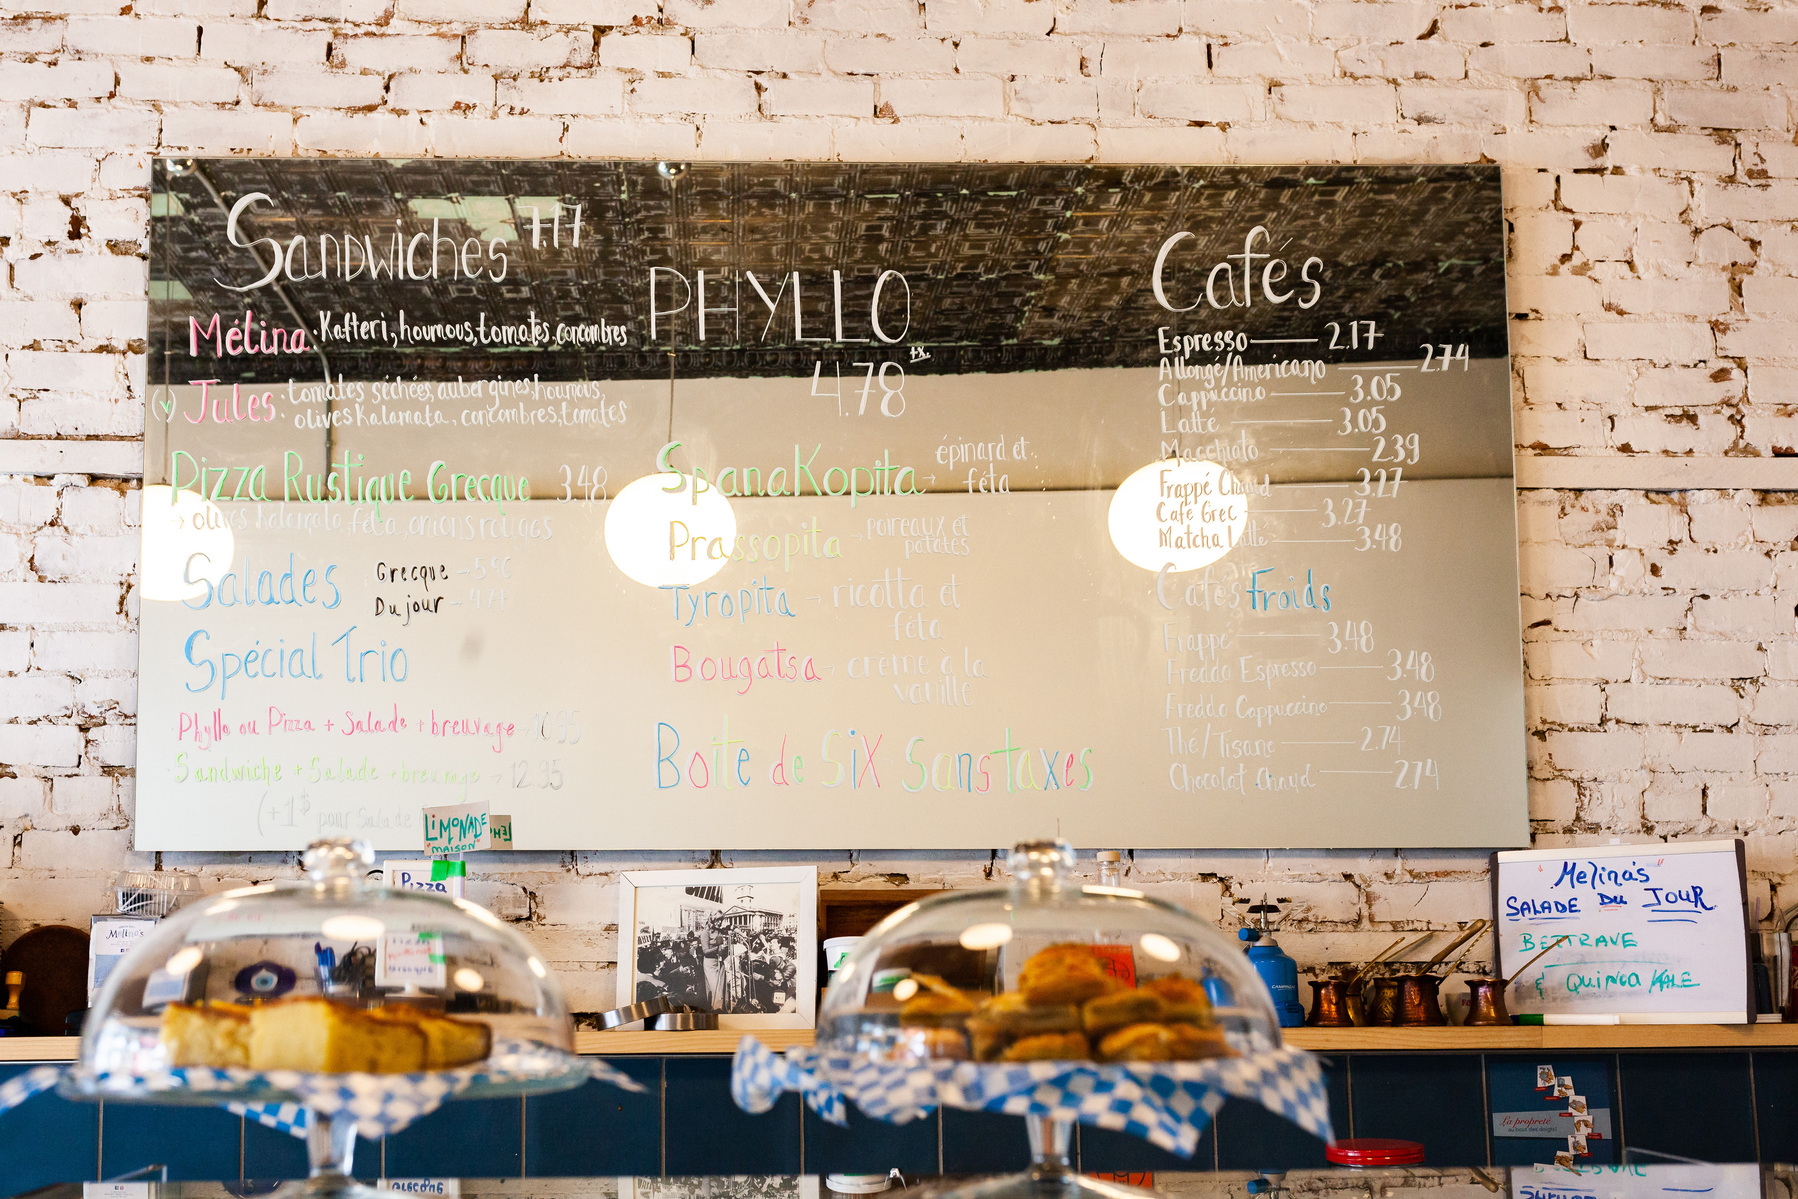 Sandwiches 7.17
Mélina: Kafteri, houmous, tomates, concombres
(v) Jules: tomates séchées, aubergines, houmous,
olives Kalamata, concombres, tomates
Pizza Rustique Grecque 3.48
→ olives kalamata, feta, onions rouges
Salades Grecque
Du jour
Spécial Trio
Phyllo ou Pizza + Salade + breuvage 10.95
Sandwiche + Salade + breuvage → 12.95
(+1$ pour Salade
PHYLLO
4.78 +tx.
SpanaKopita → épinard et
féta
Prassopita → poireaux et
patates
Tyropita → ricotta et
féta
Bougatsa → crème à la
vanille
Boite de Six Sans taxes
Cafés
Espresso 2.17
Allongé/Americano 2.74
Cappuccino 3.05
Latté 3.05
Macchiato 2.39
Frappé Chaud 3.27
Café Grec 3.27
Matcha Latté 3.48
Cafés Froids
Frappé 3.48
Freddo Espresso 3.48
Freddo Cappuccino 3.48
Thé/Tisane 2.74
Chocolat Chaud 2.74
LIMONADE
"MAISON"
Pizza
Melina's
"Melina's"
SALADE DU JOUR
BETTRAVE
& QUINOA/KALE
La propreté
au bout des doigts!